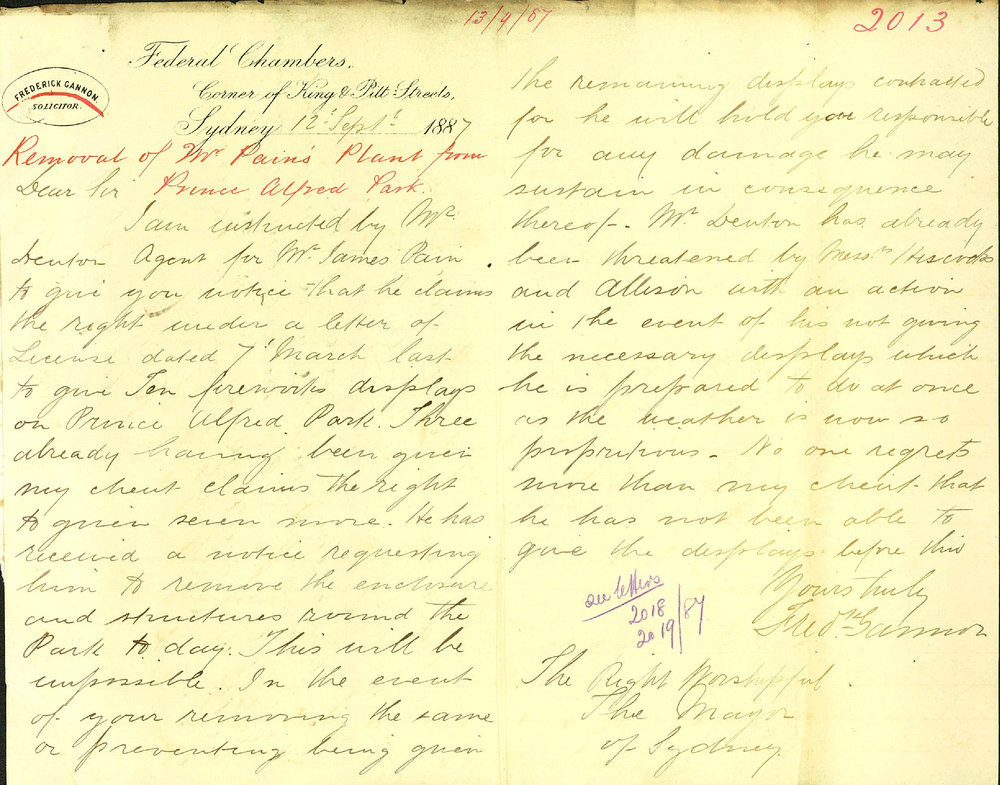 13/9/87
2013
Federal Chambers,
Corner of King & Pitt Streets,
FREDERICK GANNON
SOLICITOR.
Sydney 12' Septr 1887
Removal of Mr Pain's Plant from
Prince Alfred Park.
Dear Sir
I am instructed by Mr
Denton Agent for Mr James Pain
to give you notice that he claims
the right under a letter of
License dated 7' March last
to give Ten fireworks displays
on Prince Alfred Park. Three
already having been given
my client claims the right
to given seven more. He has
received a notice requesting
him to remove the enclosure
and structures round the
Park to day. This will be
impossible. In the event
of your removing the same
or preventing being given
the remaining displays contracted
for he will hold you responsible
for any damage he may
sustain in consequence
thereof. Mr Denton has already
been threatened by Messrs Hiscocks
and Allison with an action
in the event of his not giving
the necessary displays which
he is prepared to do at once
as the weather is now so
propritious. No one regrets
more than my client that
he has not been able to
give the displays before this
Yours truly
Fredk Gannon
see letters
2018
2019/87
The Right Worshipful
The Mayor
of Sydney